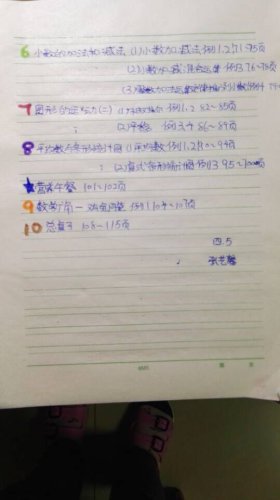 6 小数的加法和减法 (1)小数加减法 例1.2 71~75页
(2)小数加.减.混合运算 例3 76~78页
(3) 例4
7 图形的运动(二) (1) 例1.2 82~85页
(2)平移 例3.4 86~89页
8 平均数与条形统计图 (1)平均数 例1.2 90~94页
(2)复式条形统计图 例3 95~100页
★营养午餐 101~102页
9 数学广角— 鸡兔问题 例1 104~107页
10 总复习 108~115页
四5
张艺馨